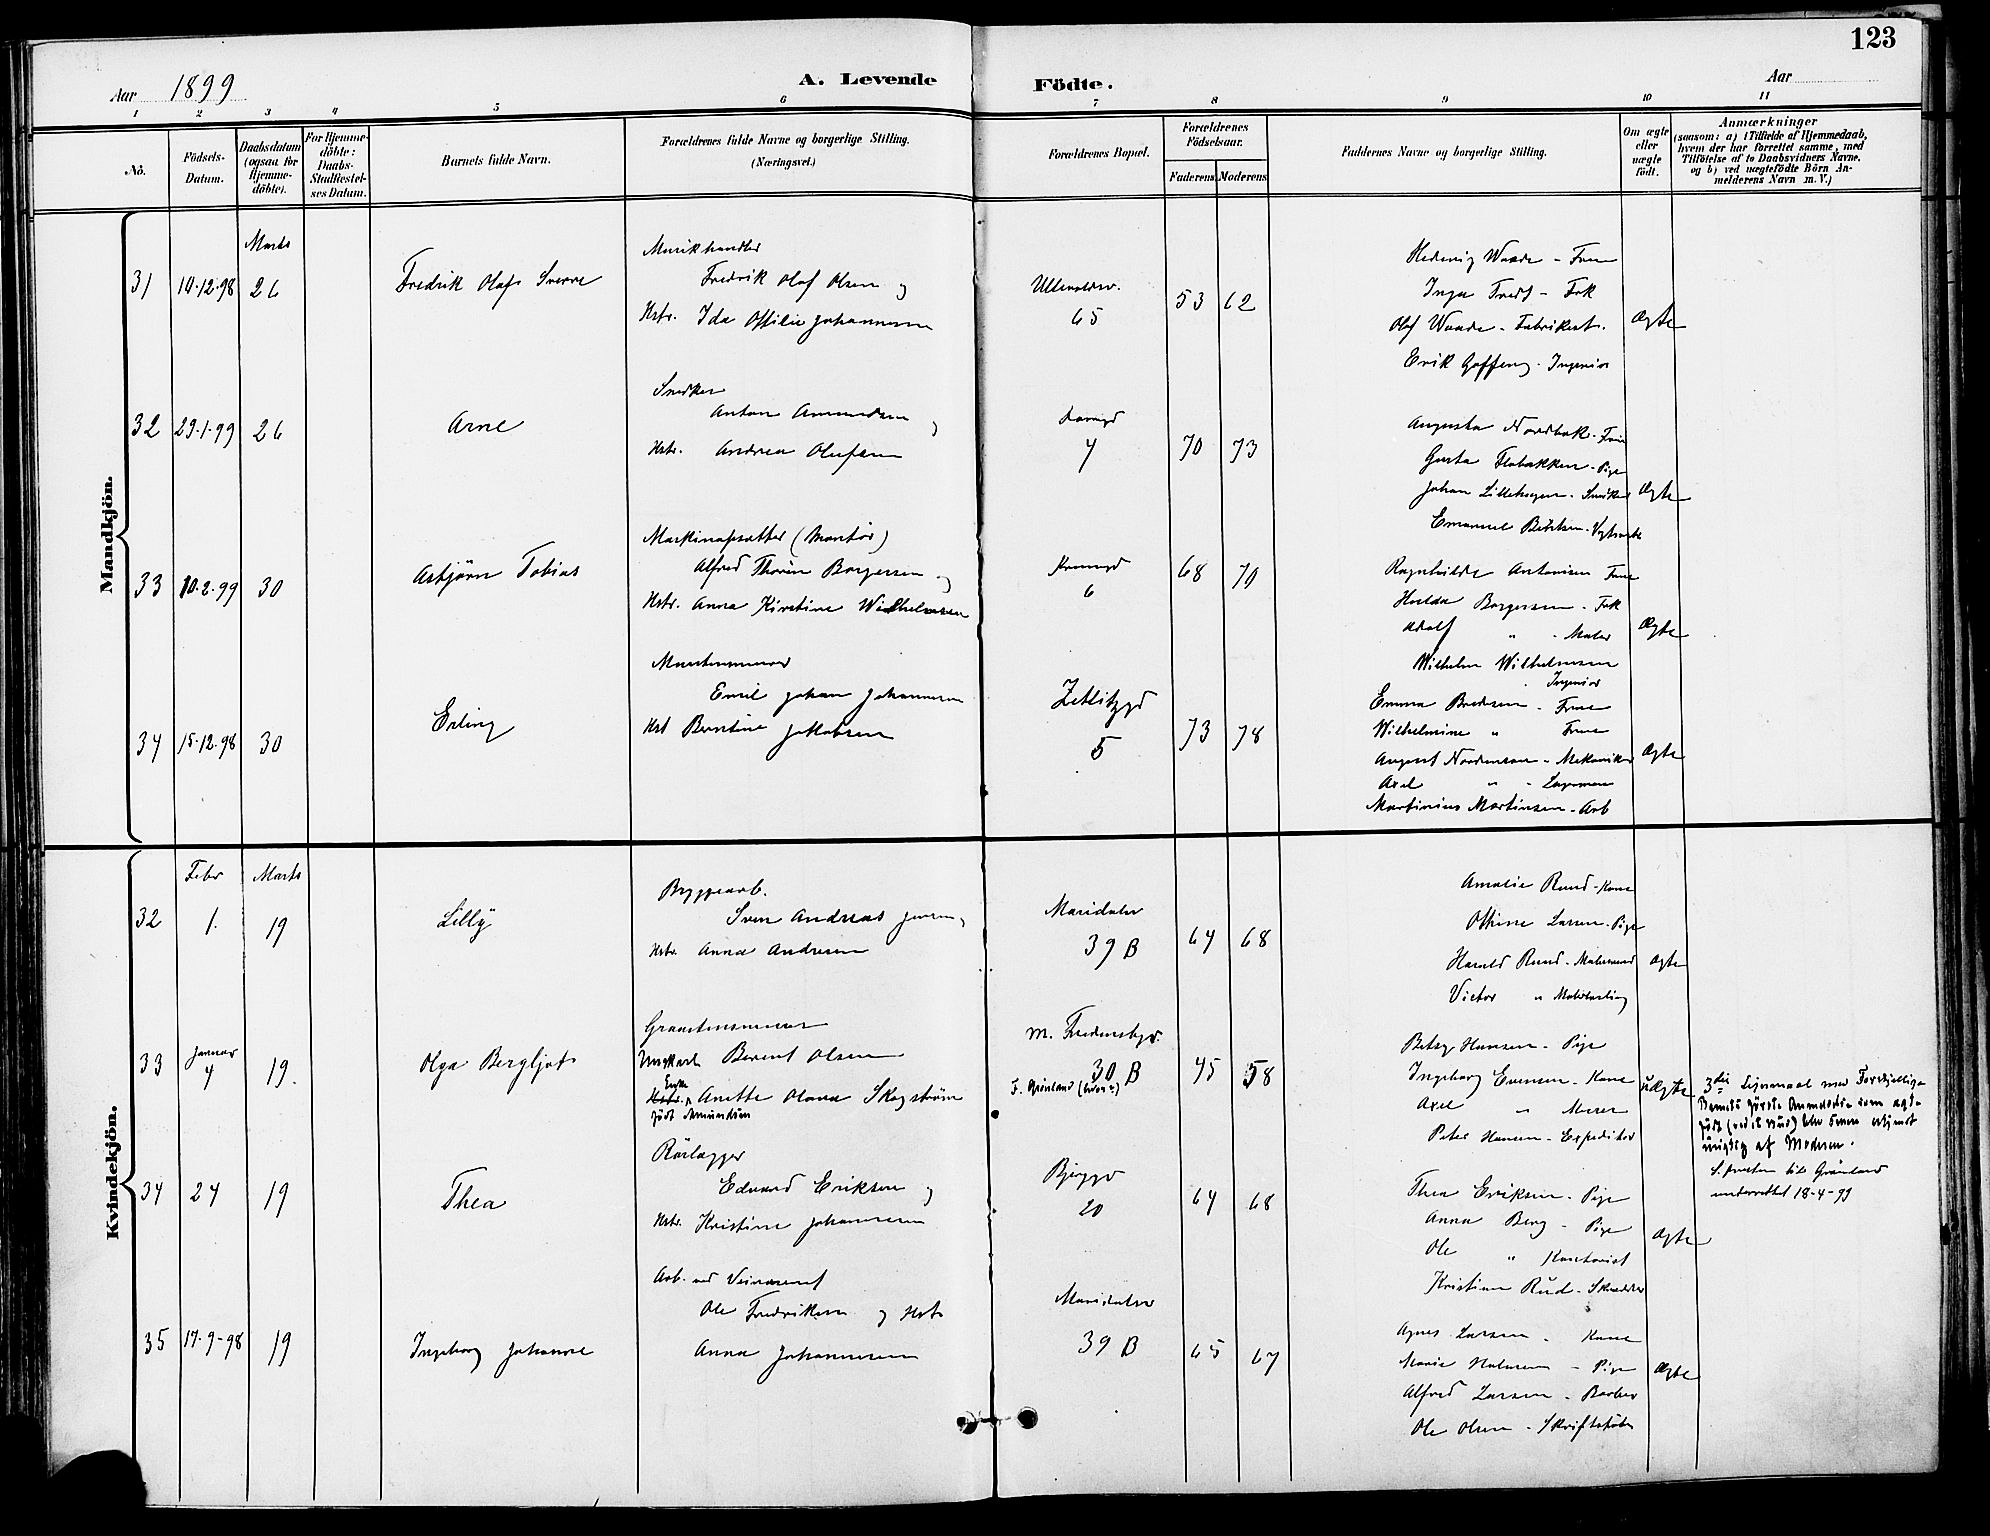 123
Aar 1899
A. Levende Födte.
Aar
1 2 3 4 5 6 7 8 9 10 11
No.
Födsels-Datum.
Daabsdatum (ogsaa for Hjemme-döbte).
For Hjemme-döbte: Daabs-Stadfæstel-ses Datum.
Barnets fulde Navn.
Forældrenes fulde Navne og borgerlige Stilling. (Næringsvei.)
Forældrenes Bopæl.
Forældrenes Födselsaar.
Faderens Moderens
Faddernes Navne og borgerlige Stilling.
Om ægte eller uægte födt.
Anmærkninger (saasom: a) i Tilfælde af Hjemmedaab, hvem der har forrettet samme, med Tilföielse af to Daabsvidners Navne, og b) ved uægtefödte Börn An-melderens Navn m. V.)
Mandkjön.
Marts
31 10.12.98 26
Fredrik Olaf Sverre
Musikhandler
Fredrik Olaf Olsen og
Hstr. Ida Otilie Johannesen
Ullevoldsv.
65
53 62
Hedevig Waade - Frue
Inga - Frk
Olaf Waade - Fabrikant.
Erik - Ingeniør
Ægte
32 29.1.99 26
Arne
Snedker
Anton Amundsen og
Hstr. Andrea Olufsen
4
70 73
Augusta Nordbak - Frue
Flobakken - Pige
Johan Lillehagen - Snedker
Emanuel
Ægte
33 10.2.99 30
Asbjørn Tobias
Maskinopsætter (Montør)
Alfred Borgersen og
Hstr. Anna Kirstine Wilhelmsen
6
68 70
Ragnhilde Antonisen Frue
Hulda Borgersen - Frk
Adolf " - Maler
Wilhelm Wilhelmsen
Ingeniør
Ægte
34 15.12.98 30
Erling
Emil Johan Johannesen
Hst Berntine Jakobsen
Zetlitzgd
5
73 78
Emma Bredesen - Frue
Wilhelmine " Frue
August - Mekaniker
Axel " -
Martinius Martinsen - Arb
Ægte
Kvindekjön.
Febr Marts
32 1. 19
Lilly
Bryggearb.
Sven Andreas Jensen,
Hstr. Anna Andresen
Maridalsv
39 B
64 68
Amalie Rund - Kone
Othine Larsen - Pige
Harald Rund - Malersvend
Victor " Malerlærling
Ægte
33 Januar 4 19.
Olga Bergljot
Ungkarl Berent Olsen
Enke
Anette Olava Skogstrøm
født Amundsen
M. Fredensbgv.
30 B
F. Grønland
45 58
Betsy Hansen - Pige
Ingeborg Evensen - Kone
Axel " Murer
Peter Hansen - Expeditør
uægte
3die Leiermaal med Forskjellige
Barnets første Anmeldelse som ægte
født
urigtig af Moderen.
S. præsten til Grønland
underrettet 18-4-99
34 24 19
Thea
Rørlægger
Edvard Eriksen og
Hstr. Kristine Johannesen
20
64 68
Thea Eriksen - Pige
Anna Berg - Pige
Ole "
Kristian Rud - Skrædder
Ægte
35 17-9-98 19
Ingeborg Johanne
Arb. ved Veivæsenet
Ole Fredriksen og Hstr
Anna Johannesen
Maridalsv
39 B
65 67
Agnes Larsen - Kone
Marie Halvorsen - Pige
Alfred Larsen - Barber
Ole Olsen - Skriftstøber
Ægte